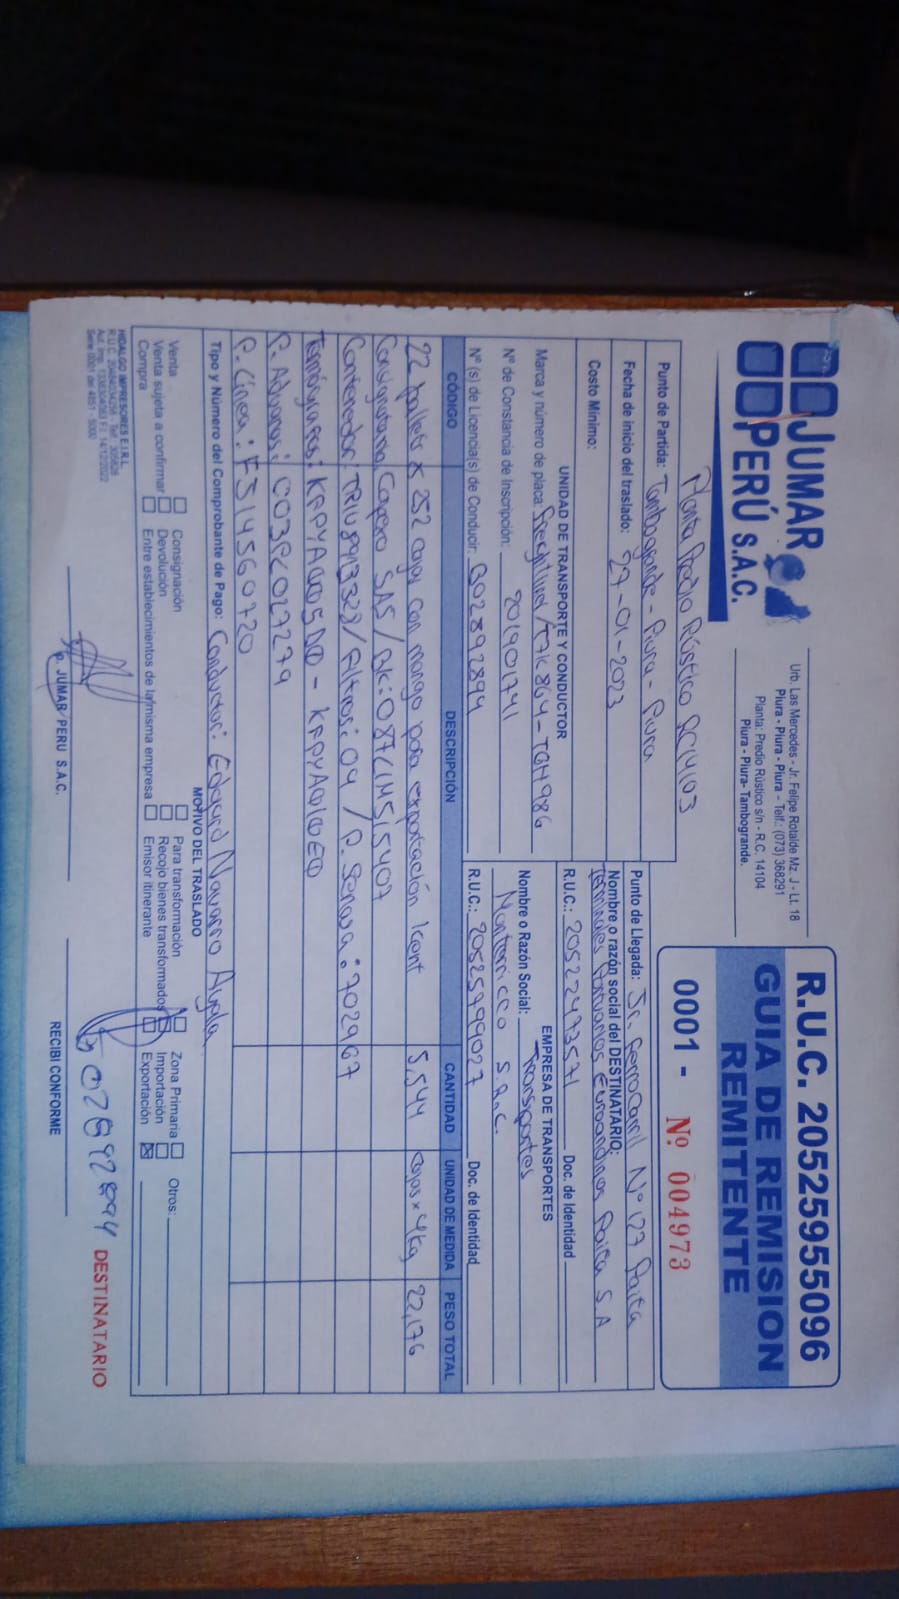 JUMAR
PERÚ S.A.C.
Urb. Las Mercedes - Jr. Felipe Rotalde Mz. J - Lt. 18
Piura - Piura - Piura - Telf.: (073) 368291
Planta: Predio Rústico s/n - R.C. 14104
Piura - Piura- Tambogrande.
R.U.C. 20525955096
GUIA DE REMISION
REMITENTE
0001 - Nº 004973
Planta Predio Rústico RC14103
Punto de Partida: Tambogrande - Piura - Piura
Fecha de inicio del traslado: 27-01-2023
Costo Mínimo:
Punto de Llegada: Jr. Ferrocarril Nº 127 Paita
Nombre o razón social del DESTINATARIO:
Terminales Portuarios Euroandinos Paita S.A
R.U.C.: 20522473571 Doc. de Identidad
UNIDAD DE TRANSPORTE Y CONDUCTOR
Marca y número de placa: Freightliner/T7K864-TGH986
Nº de Constancia de Inscripción: 201901741
Nº (s) de Licencia(s) de Conducir: B02892894
EMPRESA DE TRANSPORTES
Nombre o Razón Social: Transportes
Monterrico S.A.C.
R.U.C.: 20525999027 Doc. de Identidad
CÓDIGO DESCRIPCIÓN CANTIDAD UNIDAD DE MEDIDA PESO TOTAL
22 pallets x 252 cajas con mango para exportación Kent 5,544 cajas x 4kg 22,176
Consignatario: Capexo SAS / BK: 087LIM515407
Contenedor: TRIU8913323/Filtros: 04 / P. Senasa: 702967
Termógrafos:
P. Aduanas: 003PE027279
P. Línea: FJ14560720
Tipo y Número del Comprobante de Pago: Conductor: Edward Navarro Ayala
MOTIVO DEL TRASLADO
Venta
Venta sujeta a confirmar
Compra
Consignación
Devolución
Entre establecimientos de la misma empresa
Para transformación
Recojo bienes transformados
Emisor itinerante
Zona Primaria
Importación
Exportación
Otros:
HIDALGO IMPRESORES E.I.R.L.
p. JUMAR PERU S.A.C.
02892894
RECIBI CONFORME
DESTINATARIO